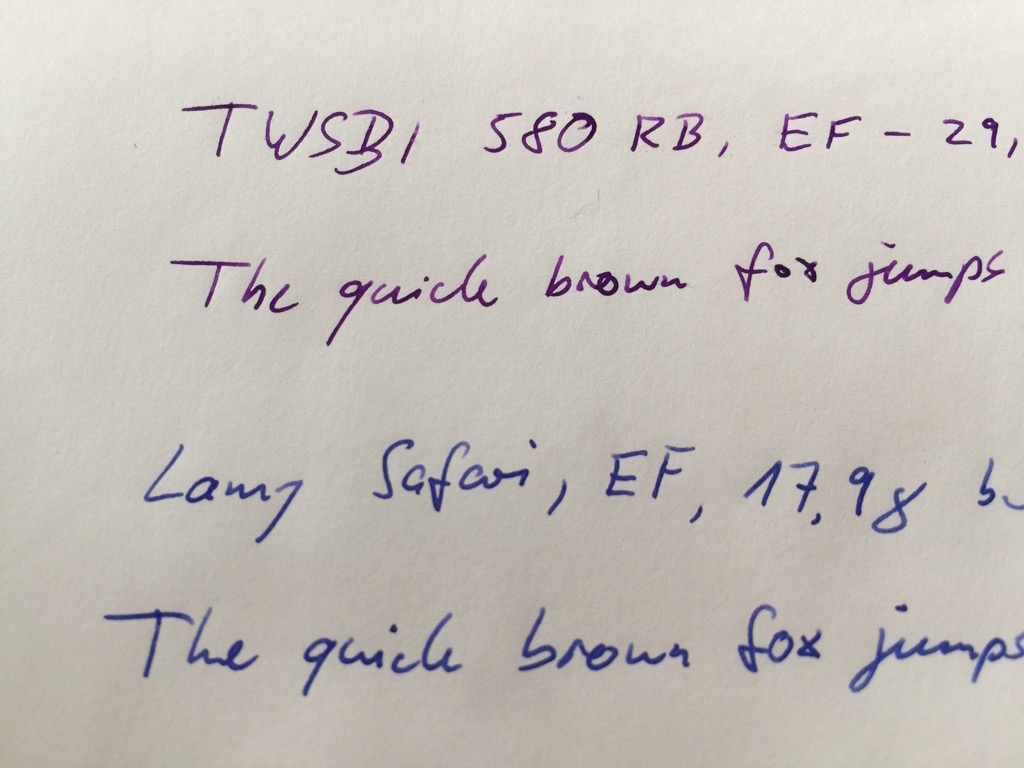 TWSBI 580 RB, EF - 29,
The quick brown fox jumps
Lamy Safari, EF, 17,9g
The quick brown fox jumps